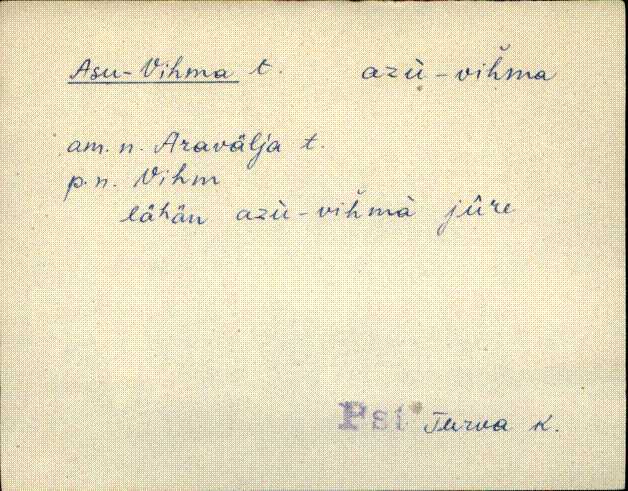 Asu-Vihma t. azù-viȟma
am. n. Aravälja t.
p. n. Vihm
lähän azù-viȟmà jûre
Pst Turva k.